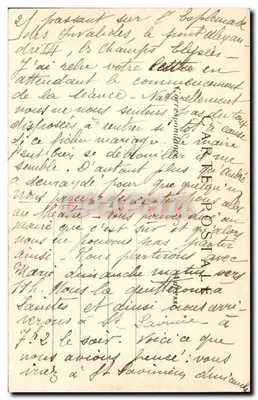 2) passant sur l'Esplanade
des Invalides, le pont Alexan
dre III, les Champs Elysées
J'ai relu votre lettre en
attendant le commencement
de la séance Naturellement
nous ne nous sentions pas du tout
disposées à rentrer si tôt à cause
de ce fichu mariage. Le maire
peut bien se débrouiller il me
semble. D'autant plus
a demandé pour que quelqu'un
nous
au théâtre. Vous pouvez dire au
maire que c'est sûr et qu'alors
nous ne pouvons pas partir
ainsi. Nous partirons avec
Marie dimanche matin vers
11h. Nous la quitterons à
Saintes et ainsi nous arri-
verons à St Savinien à
7h2 le soir. Voici ce que
nous avions pensé: vous
irez à St Savinien dimanche
CARTE POSTALE
Correspondance
Adresse